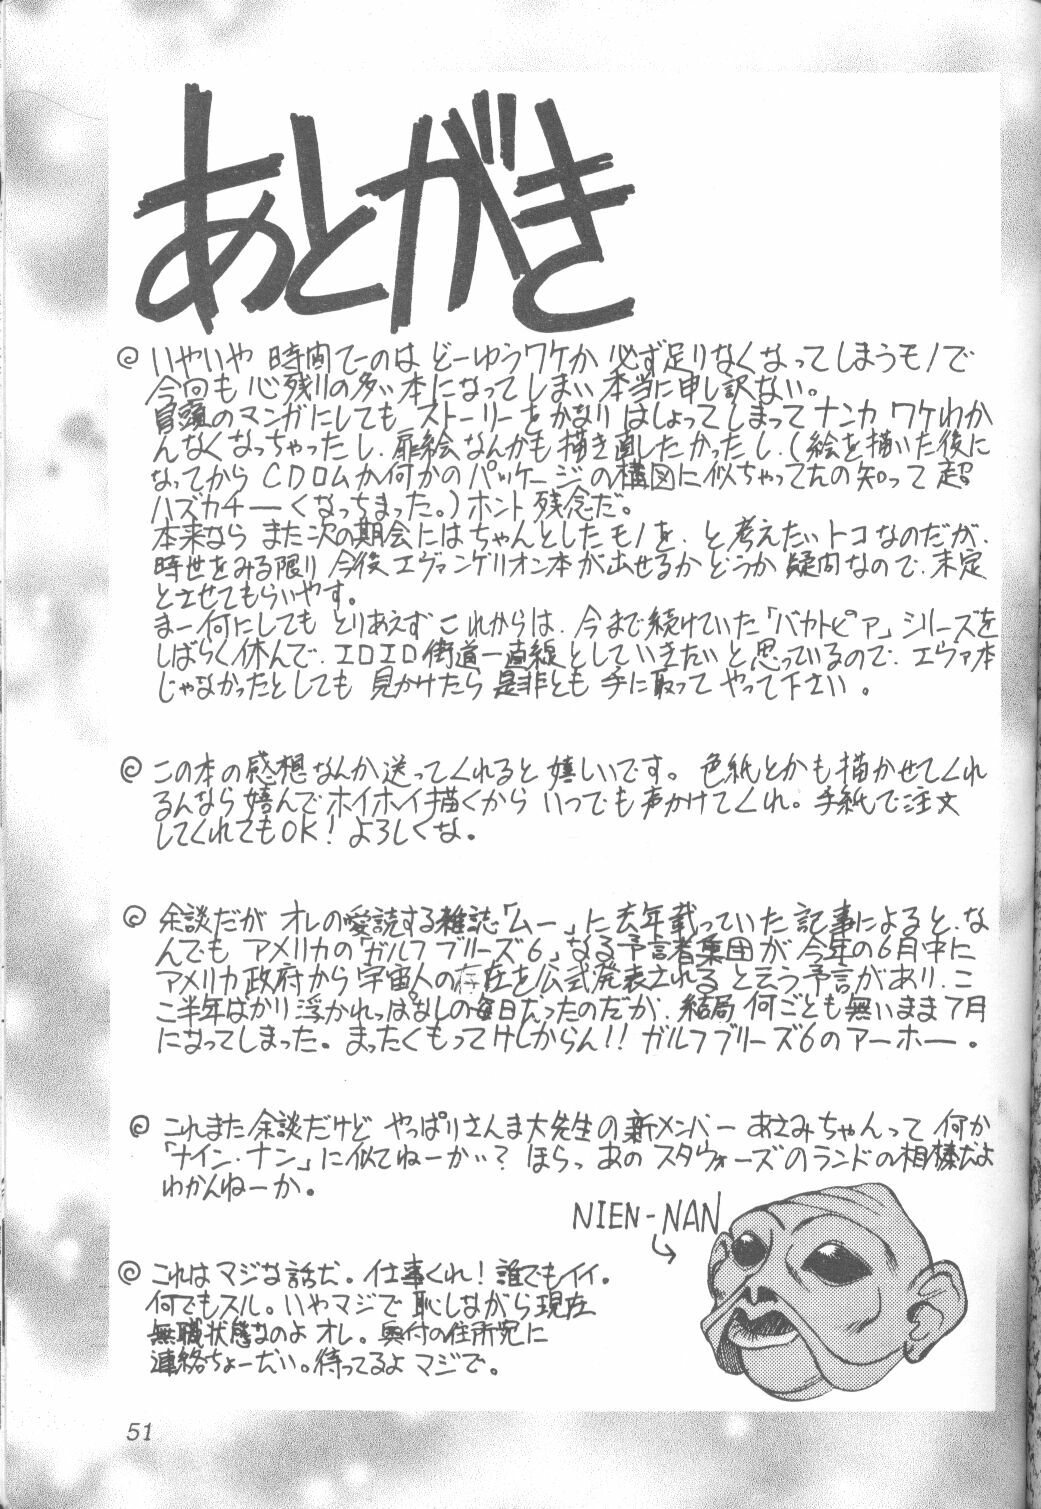 あとがき
いやいや 時間てーのは どーゆうワケか 必ず足りなくなってしまうモノで
今回も 心残りの多い本になってしまい本当に申し訳ない。
冒頭のマンガにしても ストーリーをかなりはしょってしまってナンカ ワケわか
んなくなっちゃったし、扉絵なんかも描き直したかったし、(絵を描いた後に
なってから CDロムか何かのパッケージの構図に似ちゃってたの知って 超
ハズカチーくなっちまった。)ホント 残念だ。
本来なら また次の期会にはちゃんとしたモノを、と考えたいトコなのだが、
時世をみる限り 今後エヴァンゲリオン本が出せるかどうか疑問なので、未定
とさせてもらいやす。
まー何にしても とりあえず これからは、今まで続けていた「バカトピア」シリーズを
しばらく休んで、エロエロ街道一直線としていきたいと思っているので、エヴァ本
じゃなかったとしても 見かけたら 是非とも 手に取って やって下さい。
この本の感想なんか送ってくれると嬉しいです。色紙とかも描かせてくれ
るんなら嬉んでホイホイ描くから いつでも声かけてくれ。手紙で注文
してくれてもOK! よろしくな。
余談だが オレの愛読する雑誌「ムー」に去年載っていた記事によると、な
んでも アメリカの「ガルフブリーズ6」なる予言者集団が 今年の6月中に
アメリカ政府から宇宙人の存在を公式発表されると云う予言があり、こ
こ半年ばかり浮かれっぱなしの毎日だったのだが、結局 何ごとも無いまま7月
になってしまった。まったくもってけしからん!! ガルフブリーズ6のアーホー。
これまた余談だけど やっぱりさんま大先生の新メンバー あさみちゃんって 何か
「ナイン・ナン」に似てねーかい? ほらっ あの スタウォーズのランドの相棒だよ
わかんねーか。
NIEN-NAN
これは マジな話だ。仕事くれ! 誰でもイイ。
何でもスル。いやマジで 恥しながら現在
無職状態なのよ オレ。奥付の住所宛に
連絡ちょーだい。待ってるよ マジで。
51